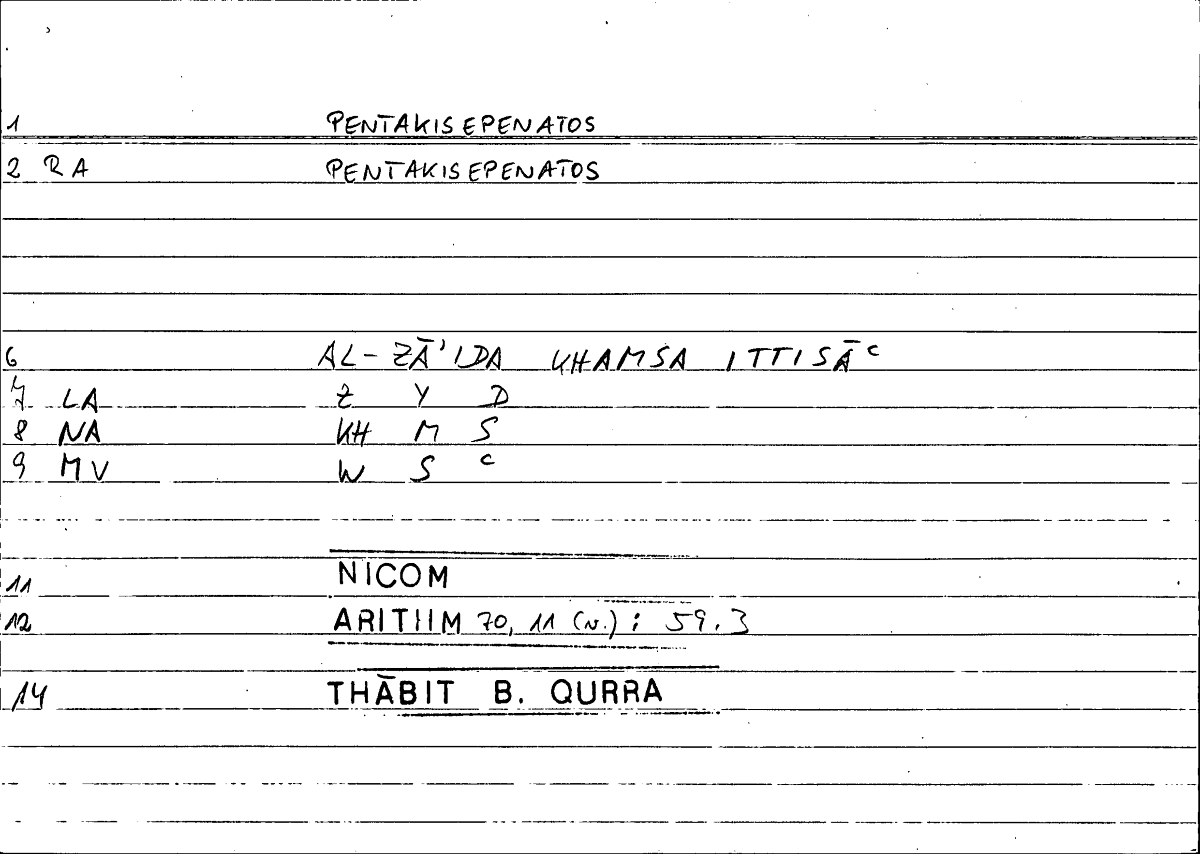 1 PENTAKISEPENATOS
2 RA PENTAKISEPENATOS
6 AL-ZĀ'IDA KHAMSA ITTISĀᶜ
7 LA Z Y D
8 NA KH M S
9 MV W S ᶜ
11 NICOM
12 ARITHM 70, 11 (N.) : 59.3
14 THĀBIT B. QURRA